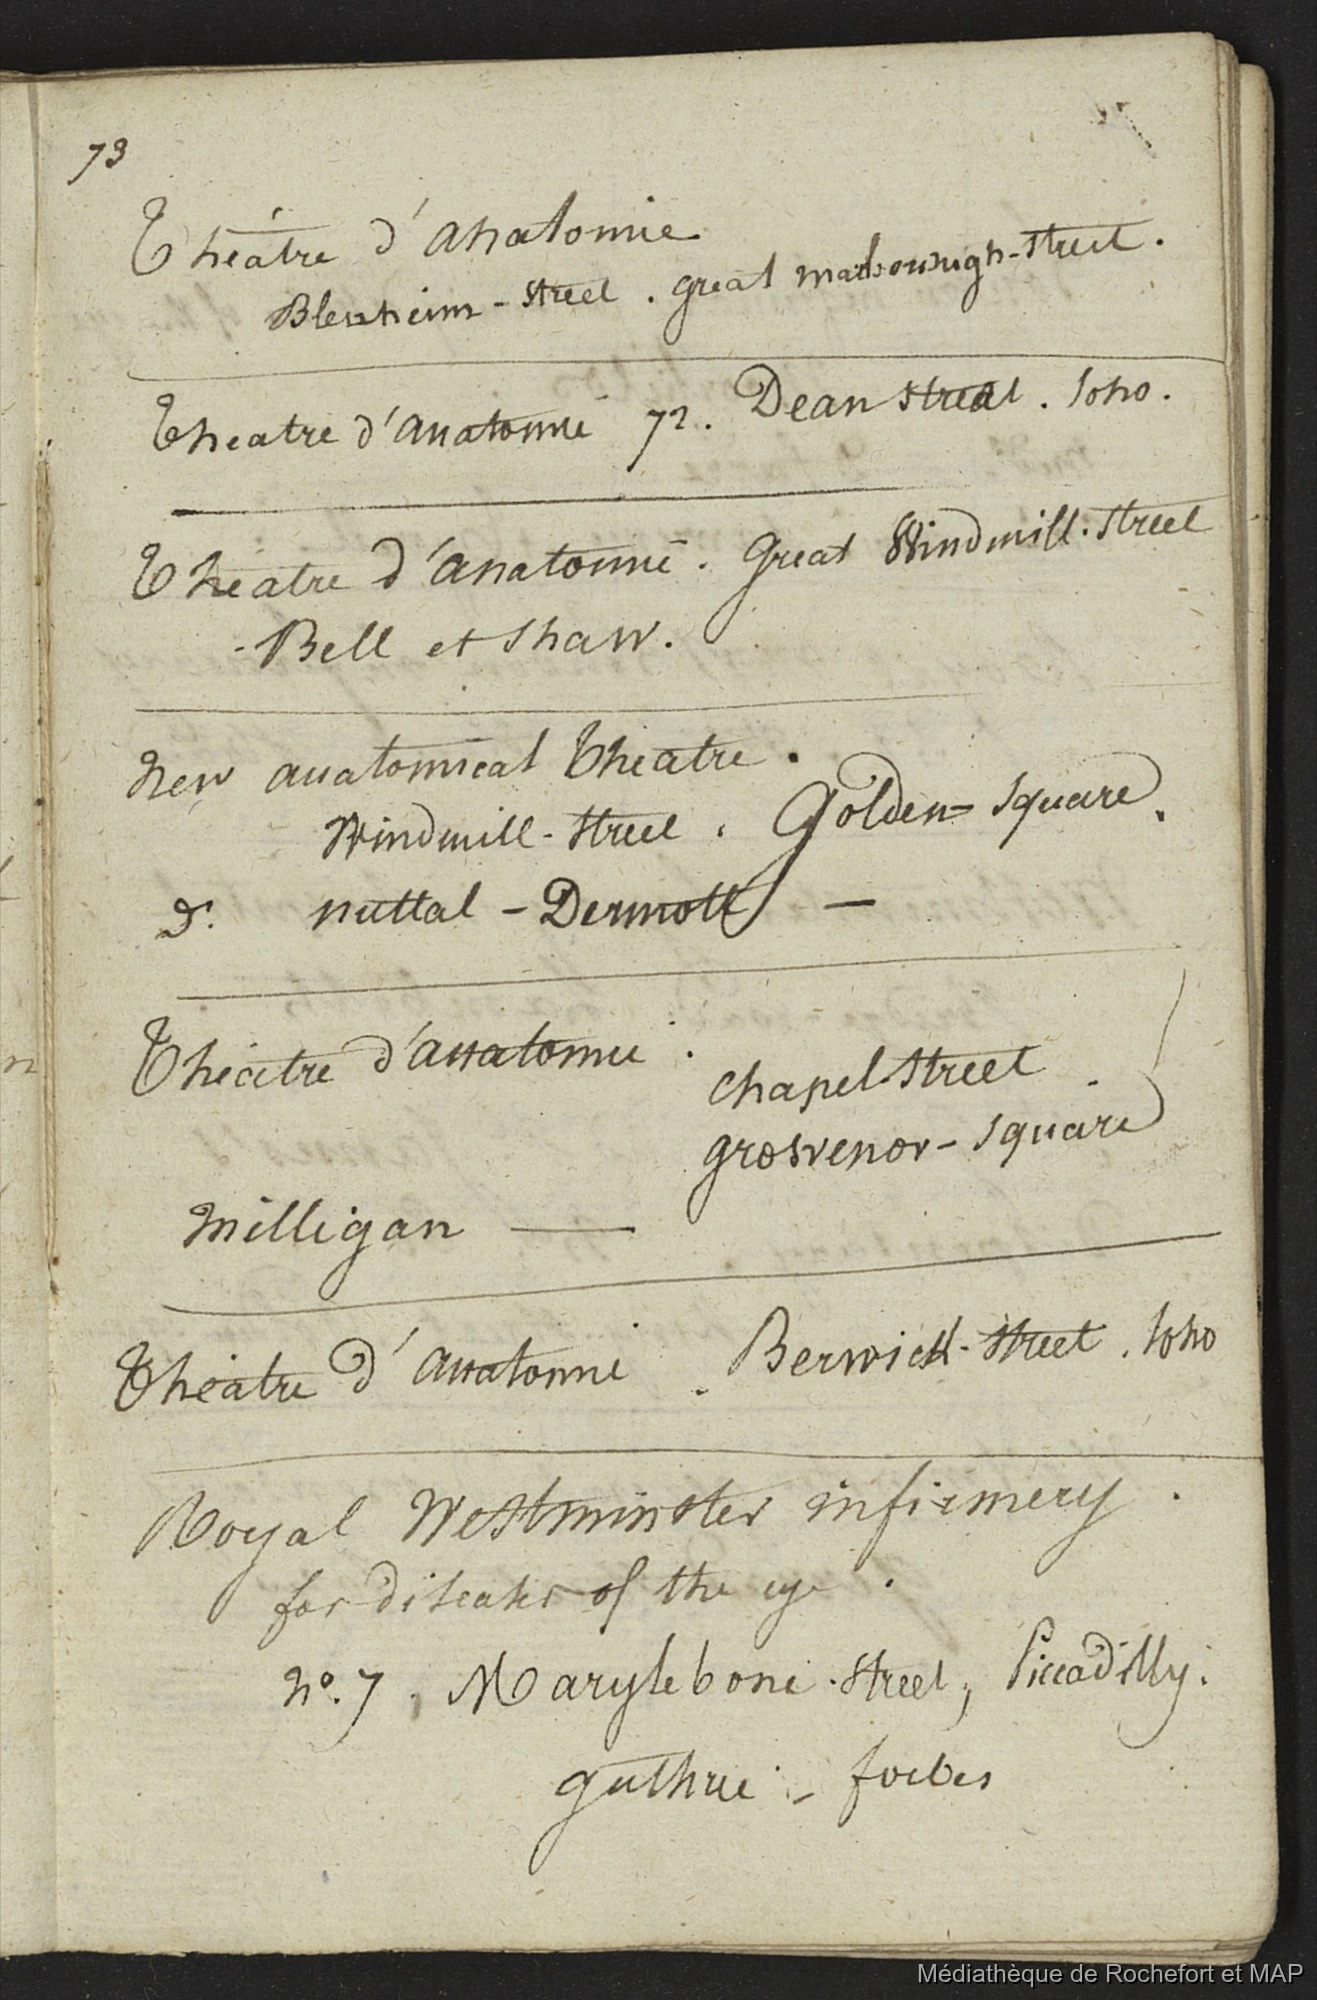 73
Théâtre d'anatomie
Blenheim-Street. great marborough-Street.
Theatre d'anatomie 72. Dean Street. Soho.
Théatre d'anatomie. Great Windmill-Street
-Bell et Shaw.
New anatomical Theatre.
Windmill-Street. Golden-Square.
Dr. nuttal - Dermott -
Théatre d'anatomie.
Chapel Street
grosvenor-Square
Milligan -
Théatre d'anatomie. Berwick-Street. Soho
Royal Westminster infirmery.
for diseases of the eye.
No. 7, Marylebone-Street, Piccadilly.
guthrie - forbes
Médiathèque de Rochefort et MAP